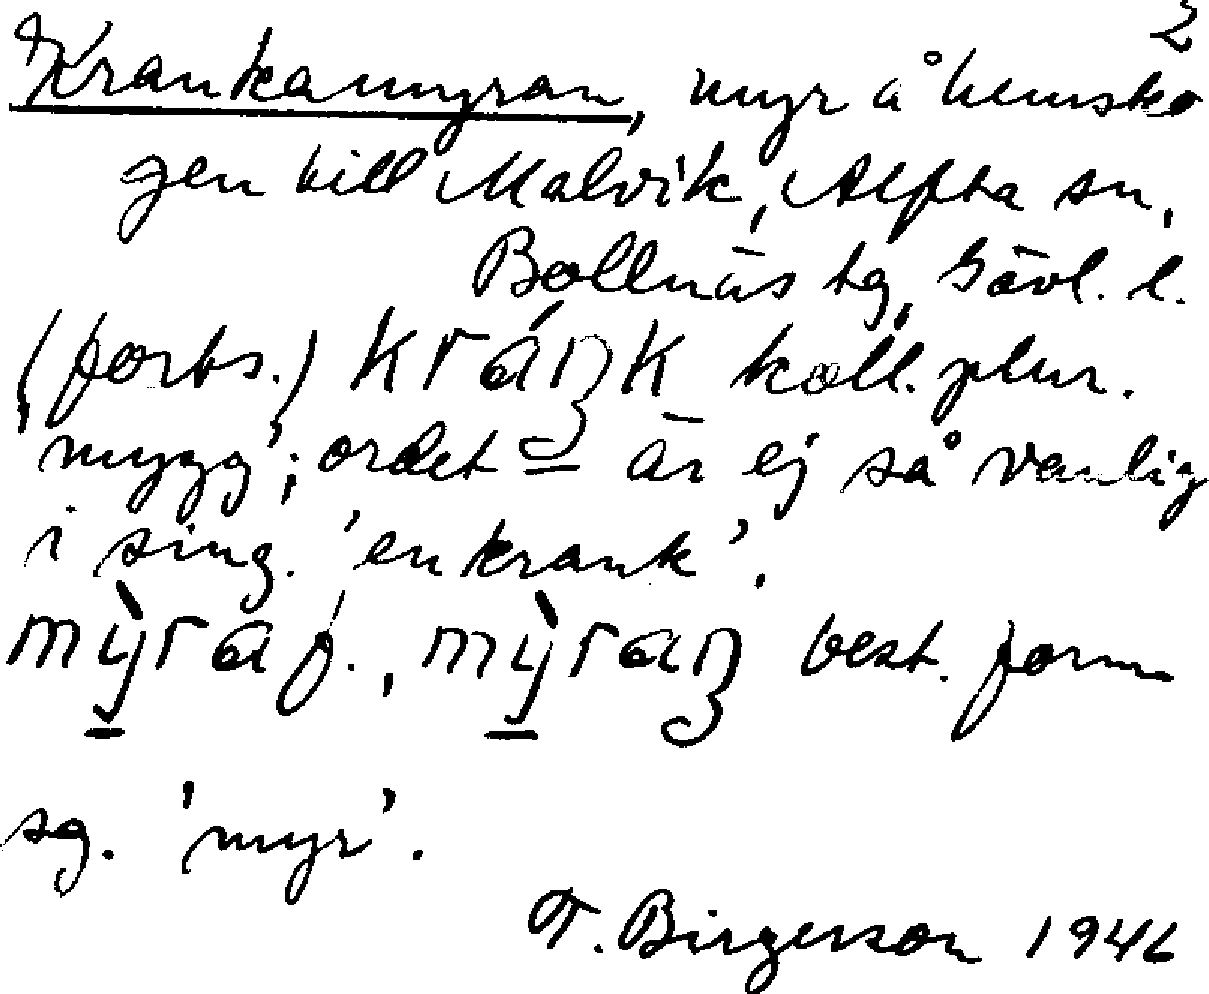 2
Krankamyran, myr å hemsko
gen till Malvik, Alfta sn,
Bollnäs tg, Gävl. l.
(forts.) kráŋk koll. plur.
'mygg'; ordet är ej så vanlig
i sing. 'en krank'.
mỳ̠ra f., mỳ̠raŋ best. form
sg. 'myr'.
T. Birgerson 1946